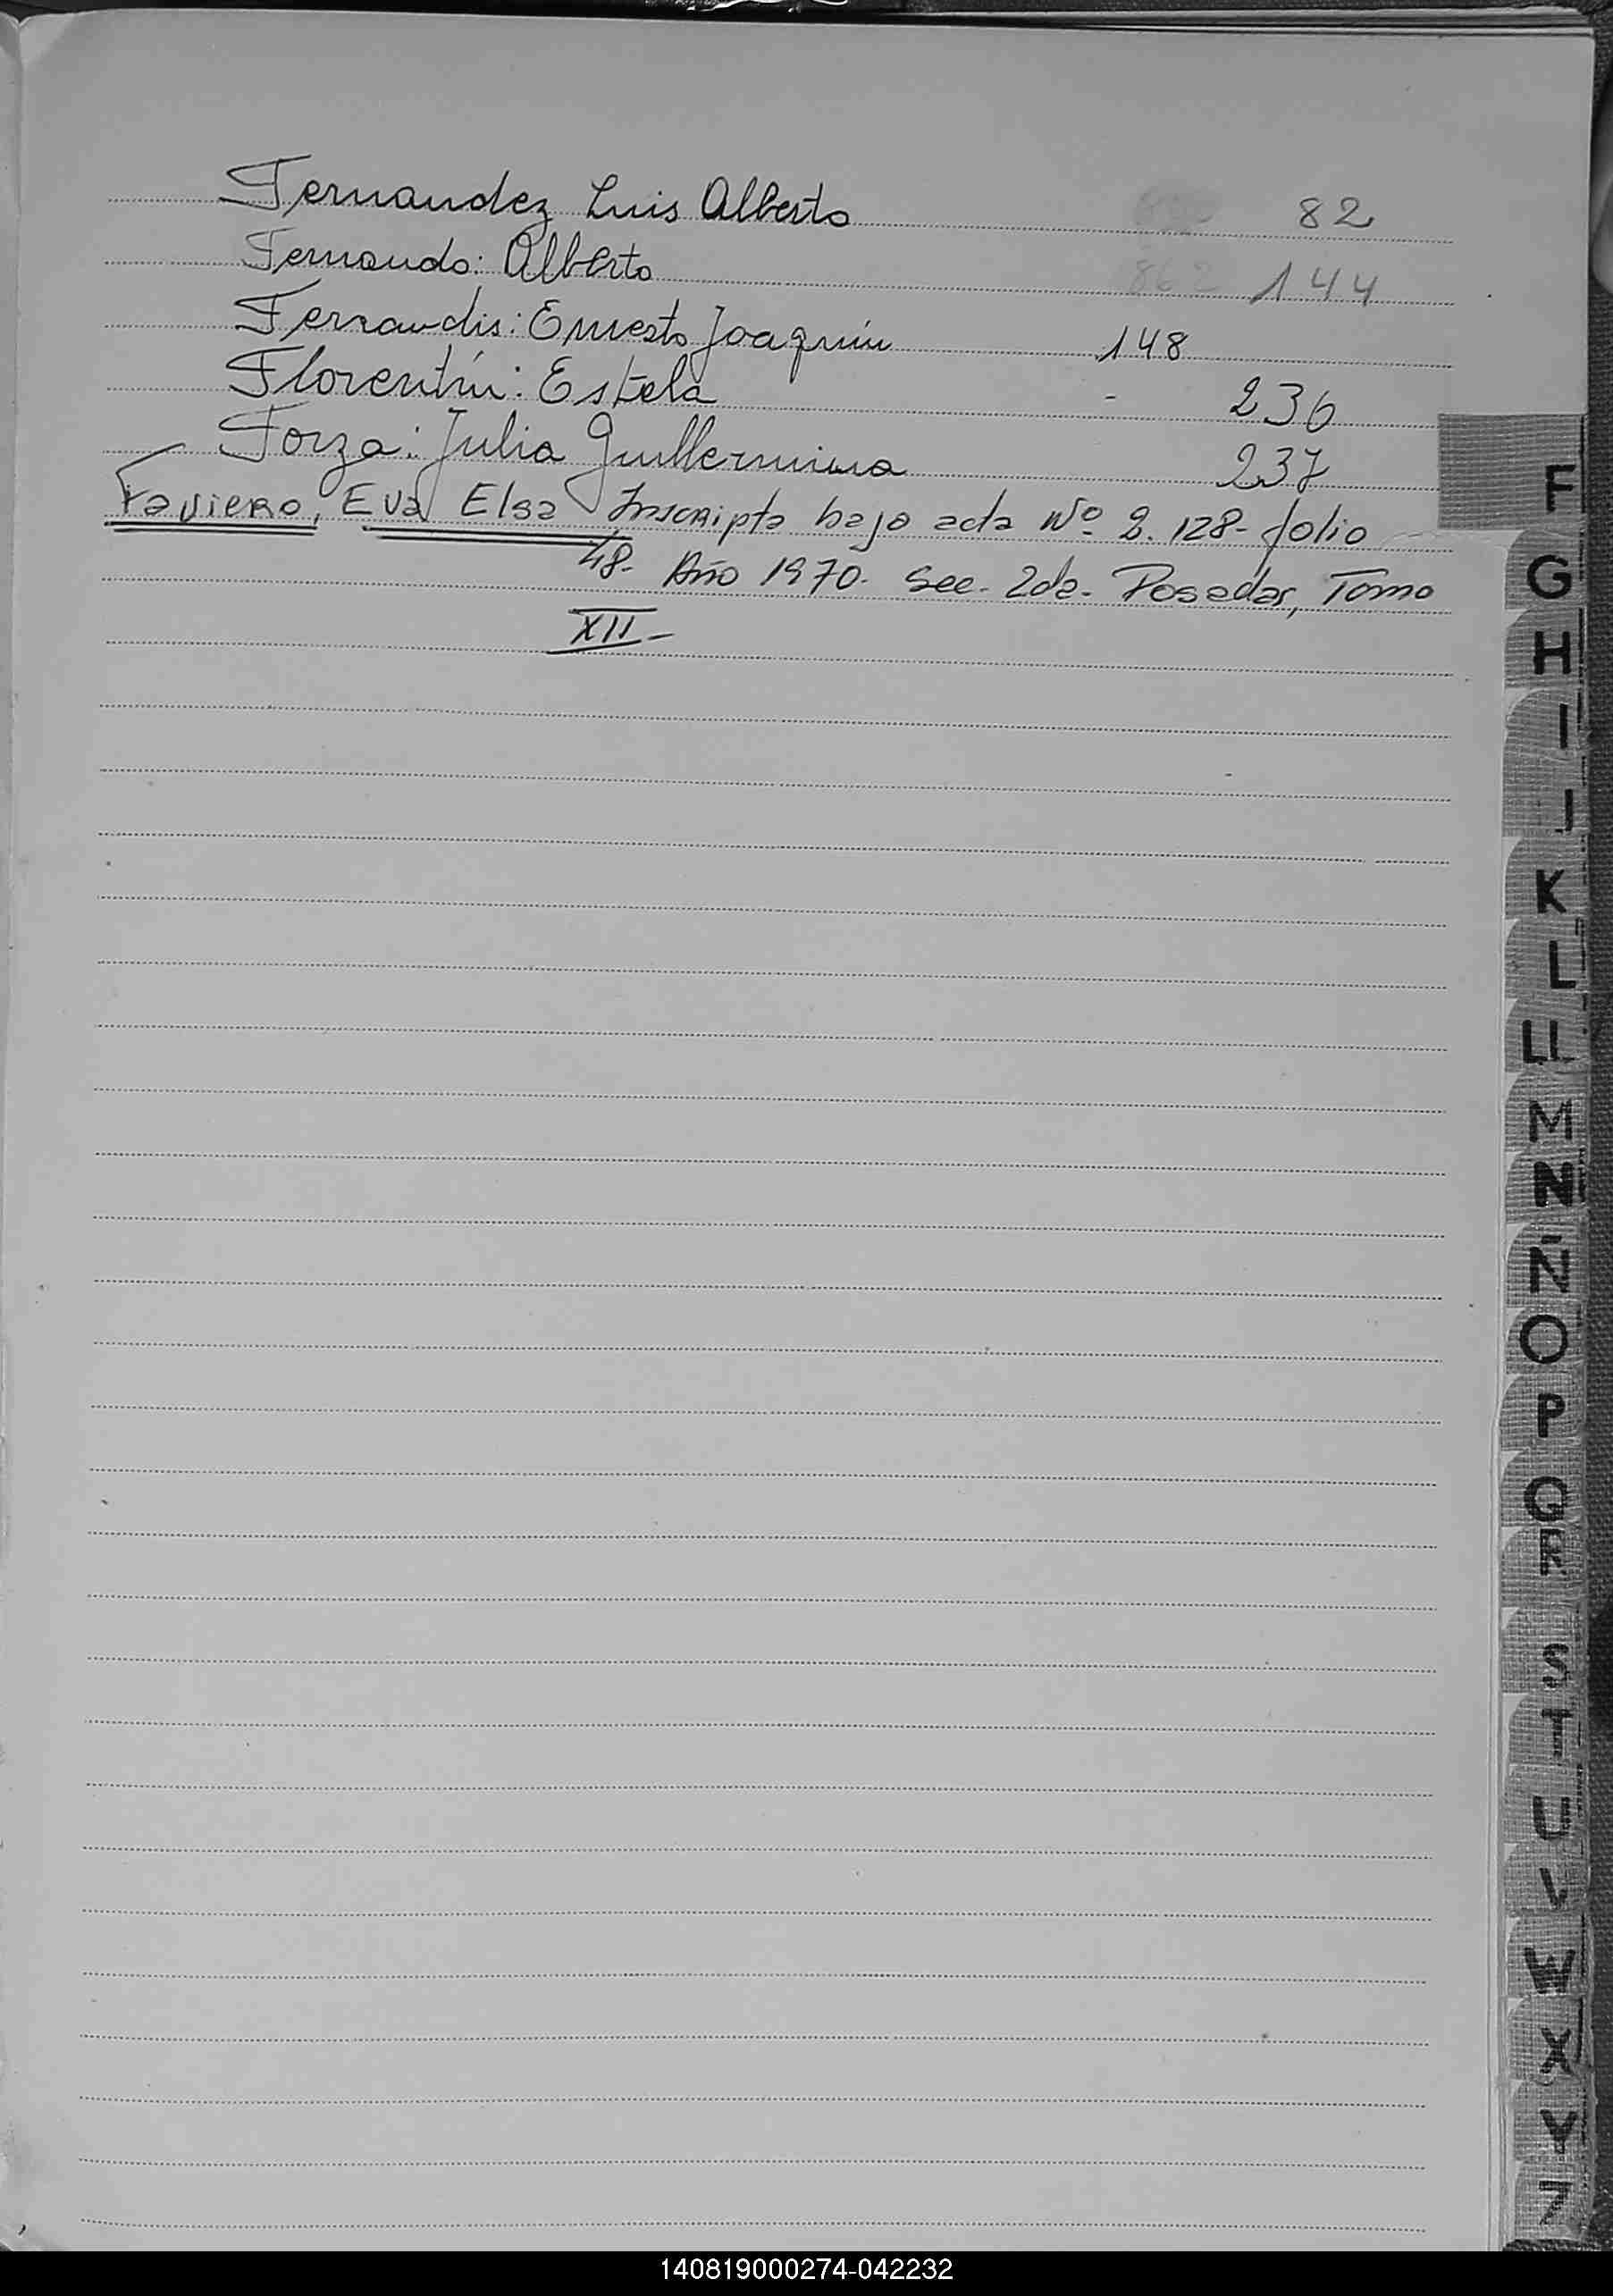 Fernandez Luis Alberto 82
Fernando: Alberto 862 144
Ferrandis: Ernesto Joaquín 148
Florentín: Estela - 236
Forza: Julia Guillermina 237
Faviero, Eva Elsa Inscripta bajo acta Nº 2.128- folio
48- Año 1970- Sec. 2da. Posadas, Tomo
XII-
F
G
H
I
J
K
L
LL
M
N
Ñ
O
P
Q
R
S
T
U
V
W
X
Y
Z
140819000274-042232